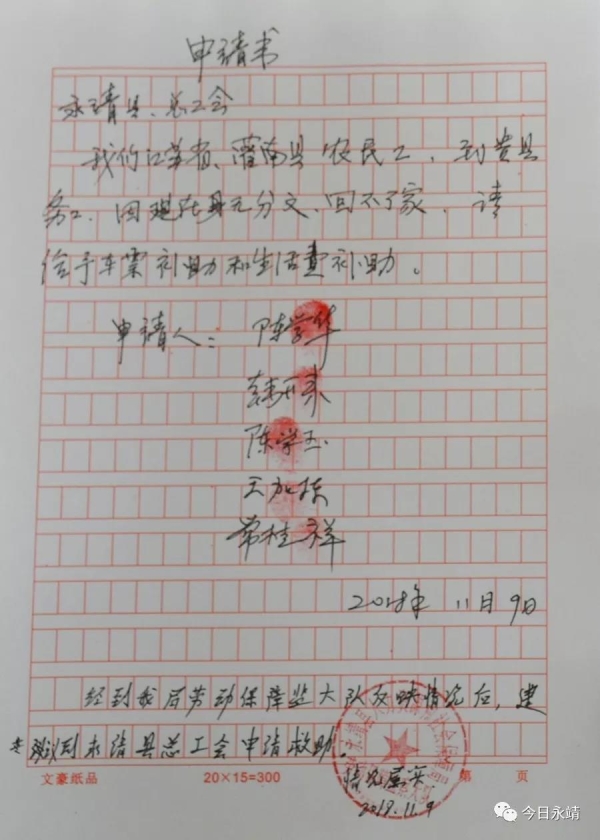 申请书
永靖县、总工会
我们江苏省、灌南县农民工、到贵县
务工、因现在身无分文、回不了家、请
给予车票补助和生活费补助。
申请人: 陈学华
韩开来
陈学玉
王加
常桂祥
2018年 11月 9日
经到我局劳动保障监大队反映情况后,建
议到永靖县总工会申请救助.
情况属实.
2018.11.9
文豪纸品 20×15=300 第 页
今日永靖